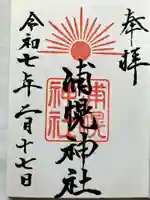 奉拝
浦幌神社
浦幌
神社
令和七年二月十七日